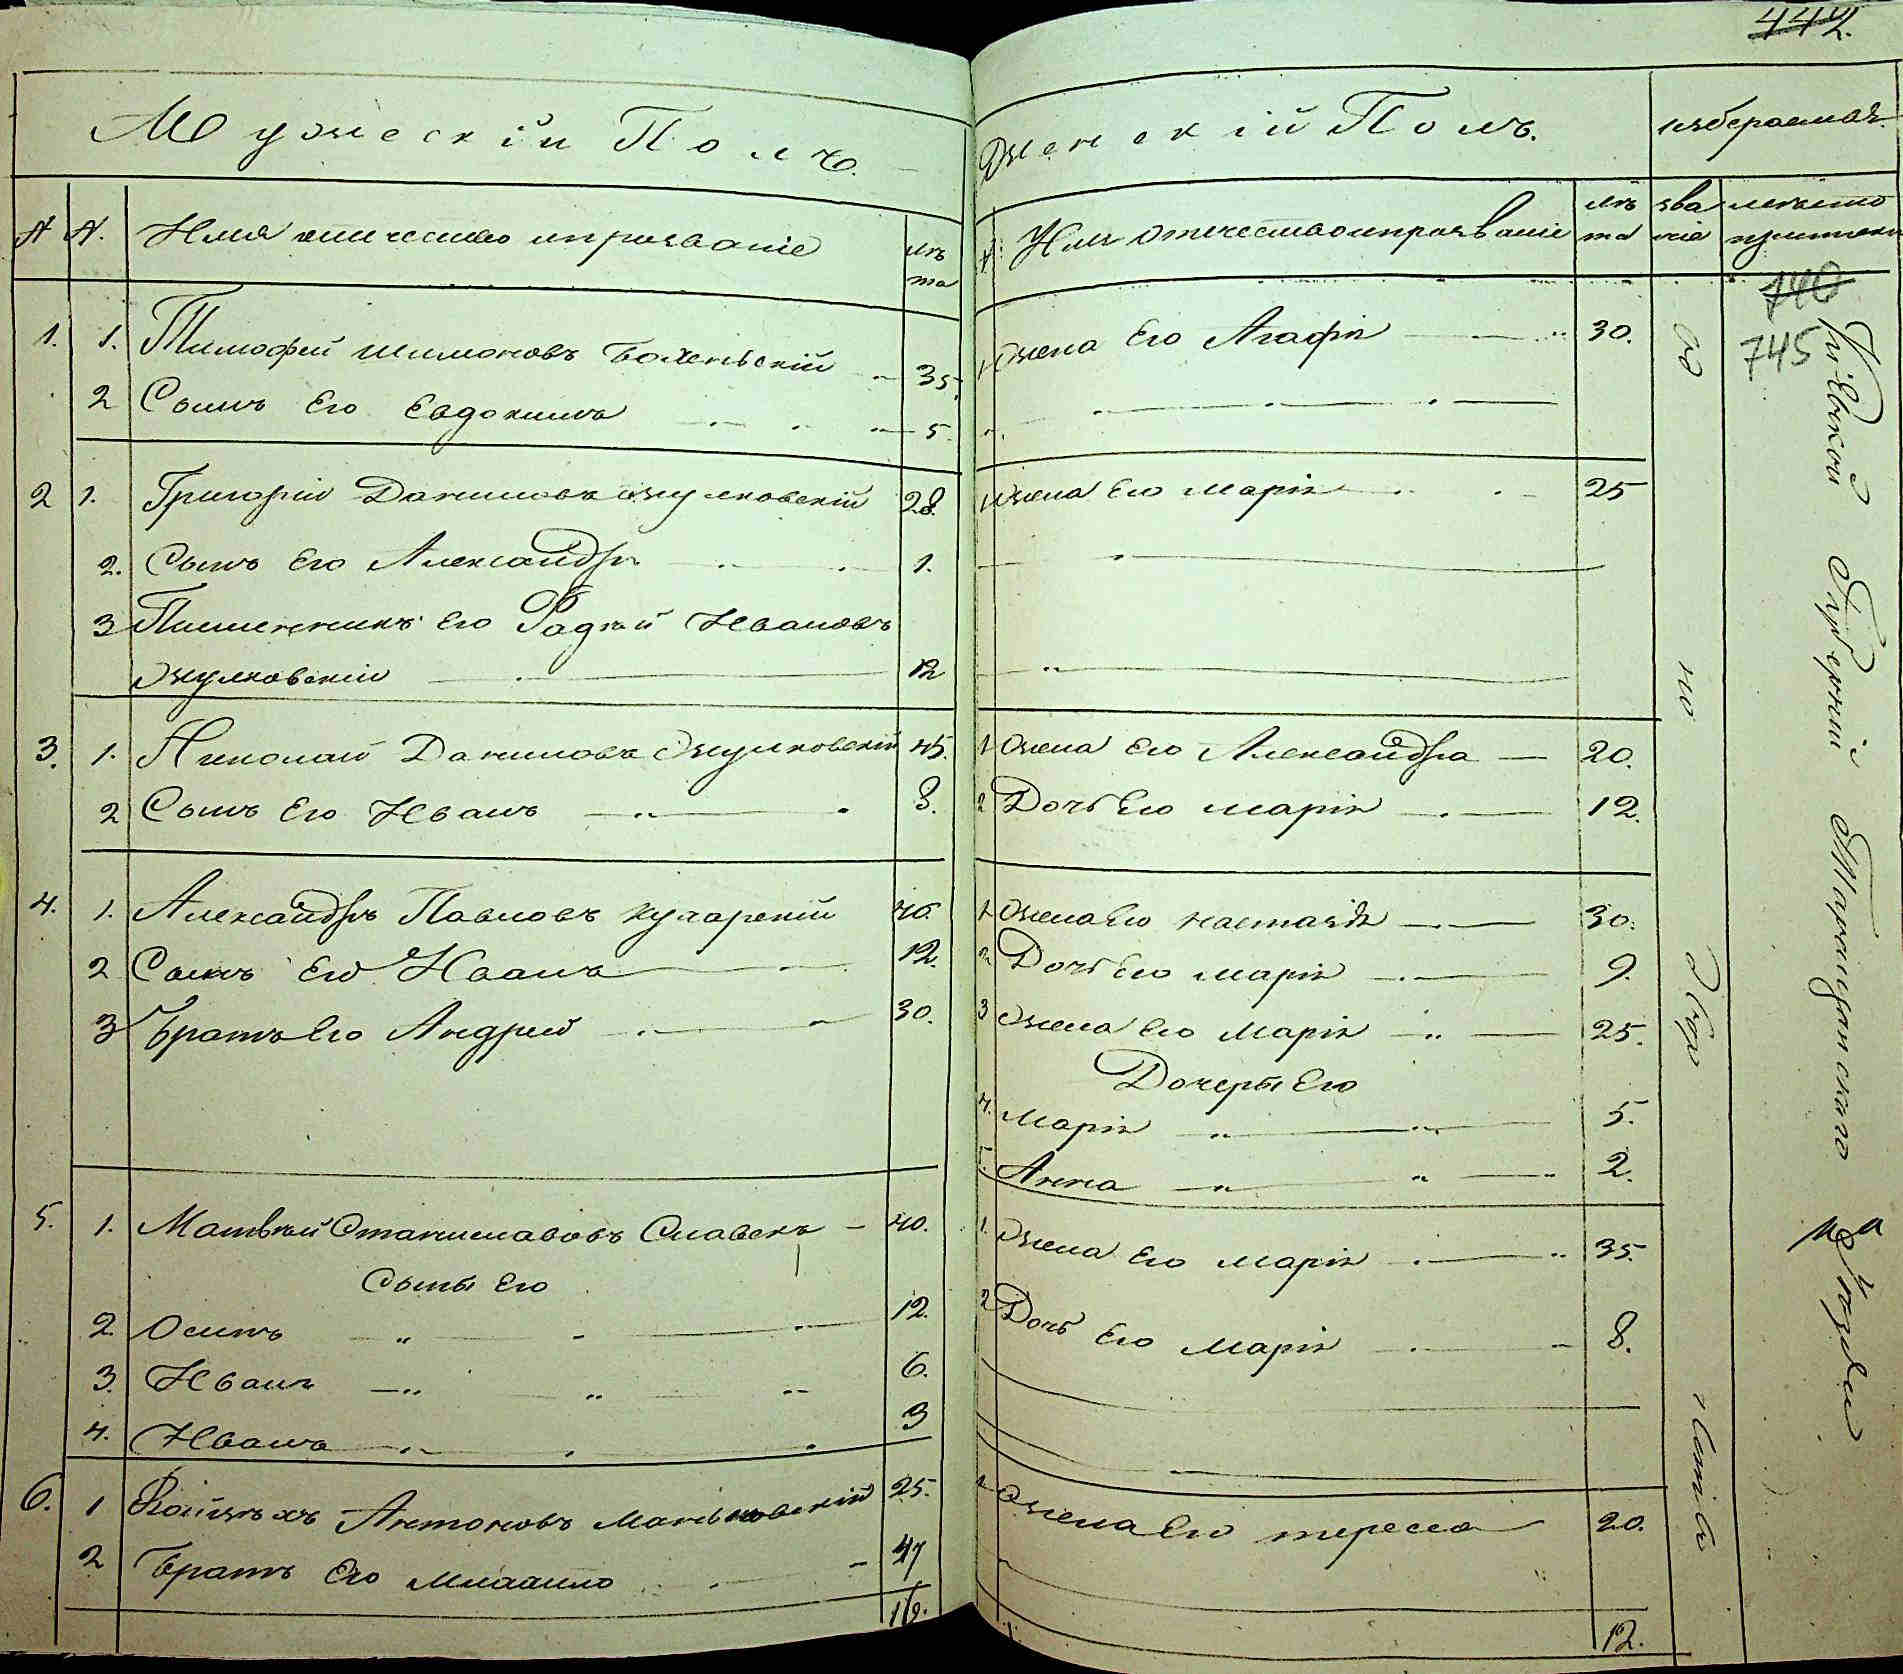 442.
Мужескій Полъ.
№ №. Имя отчество ипрозваніе лѣта
1. 1. Тимофей Шимоновъ Боженьскій 35.
2 Сынъ Его Евдокимъ 5.
2 1. Григорій Даниловъ Жулковскій 28.
2. Сынъ Его Александръ 1.
3 Племенникъ Его Фадѣй Ивановъ
Жулковскій 12
3. 1. Николай Даниловъ Жулковскій 45.
2 Сынъ Его Иванъ 8.
4. 1. Александръ Павловъ Кухарскій 40.
2 Сынъ Его Иванъ 12.
3 Братъ Его Андрей 30.
5. 1. Матвѣй Станиславовъ Славекъ 40.
Сыны Его
2. Осипъ 12.
3. Иванъ 6.
4. Иванъ 3
6. 1 Войцѣхъ Антоновъ Маньковскій 25.
2 Братъ Его 17
Женскій Полъ.
избераемая
№ Имя отчество ипрозваніе лѣта званіе
1 Жена Его Агафія 30.
740
745
1 Жена Его Марія 25
1 Жена Его Александра 20.
2 Дочь Его Марія 12.
1 Жена Его Настазія 30.
2 Дочь Его Марія 9.
3 Жена Его Марія 25.
Дочеры Его
4. Марія 5.
5. Анна 2.
1. Жена Его Марія 35.
2 Дочь Его Марія 8.
1 Жена Его Тереса 20.
12.
Кіевской Губерній Таращанского